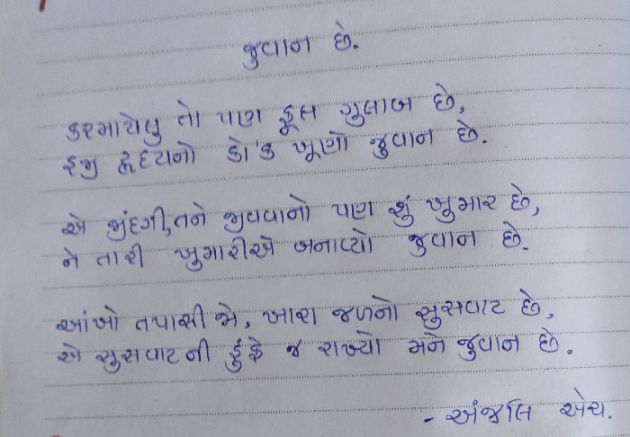 જુવાન છે.
કરમાયેલુ તો પણ ફૂલ ગુલાબ છે,
હજી હૃદયનો કો'ક ખૂણો જુવાન છે.
એ જીંદગી,તને જીવવાનો પણ શું ખુમાર છે,
ને તારી ખુમારીએ બનાવ્યો જુવાન છે.
આંખો તપાસી જો, ખારા જળનો સુસવાટ છે,
એ સુસવાટ ની હુંફે જ રાખ્યો મને જુવાન છે.
- અંજલિ એચ.